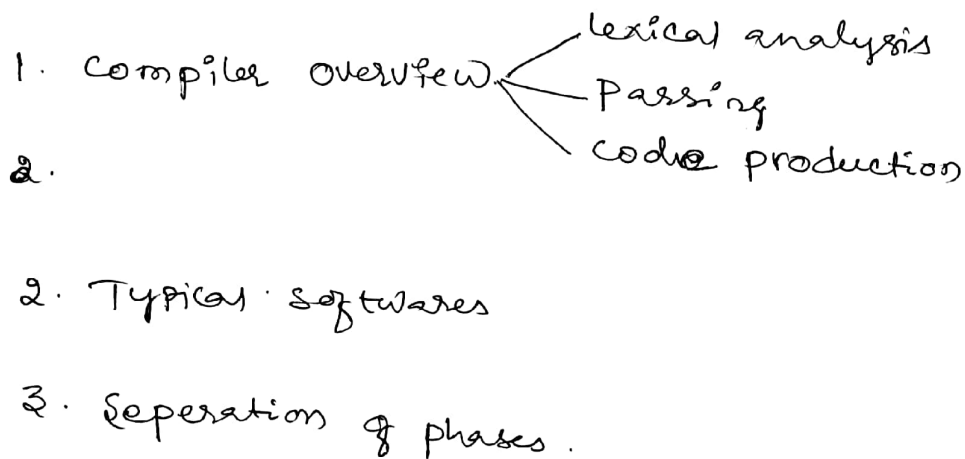 1. Compiler overview
lexical analysis
Passing
code production
2.
2. Typical softwares
3. Seperation of phases.